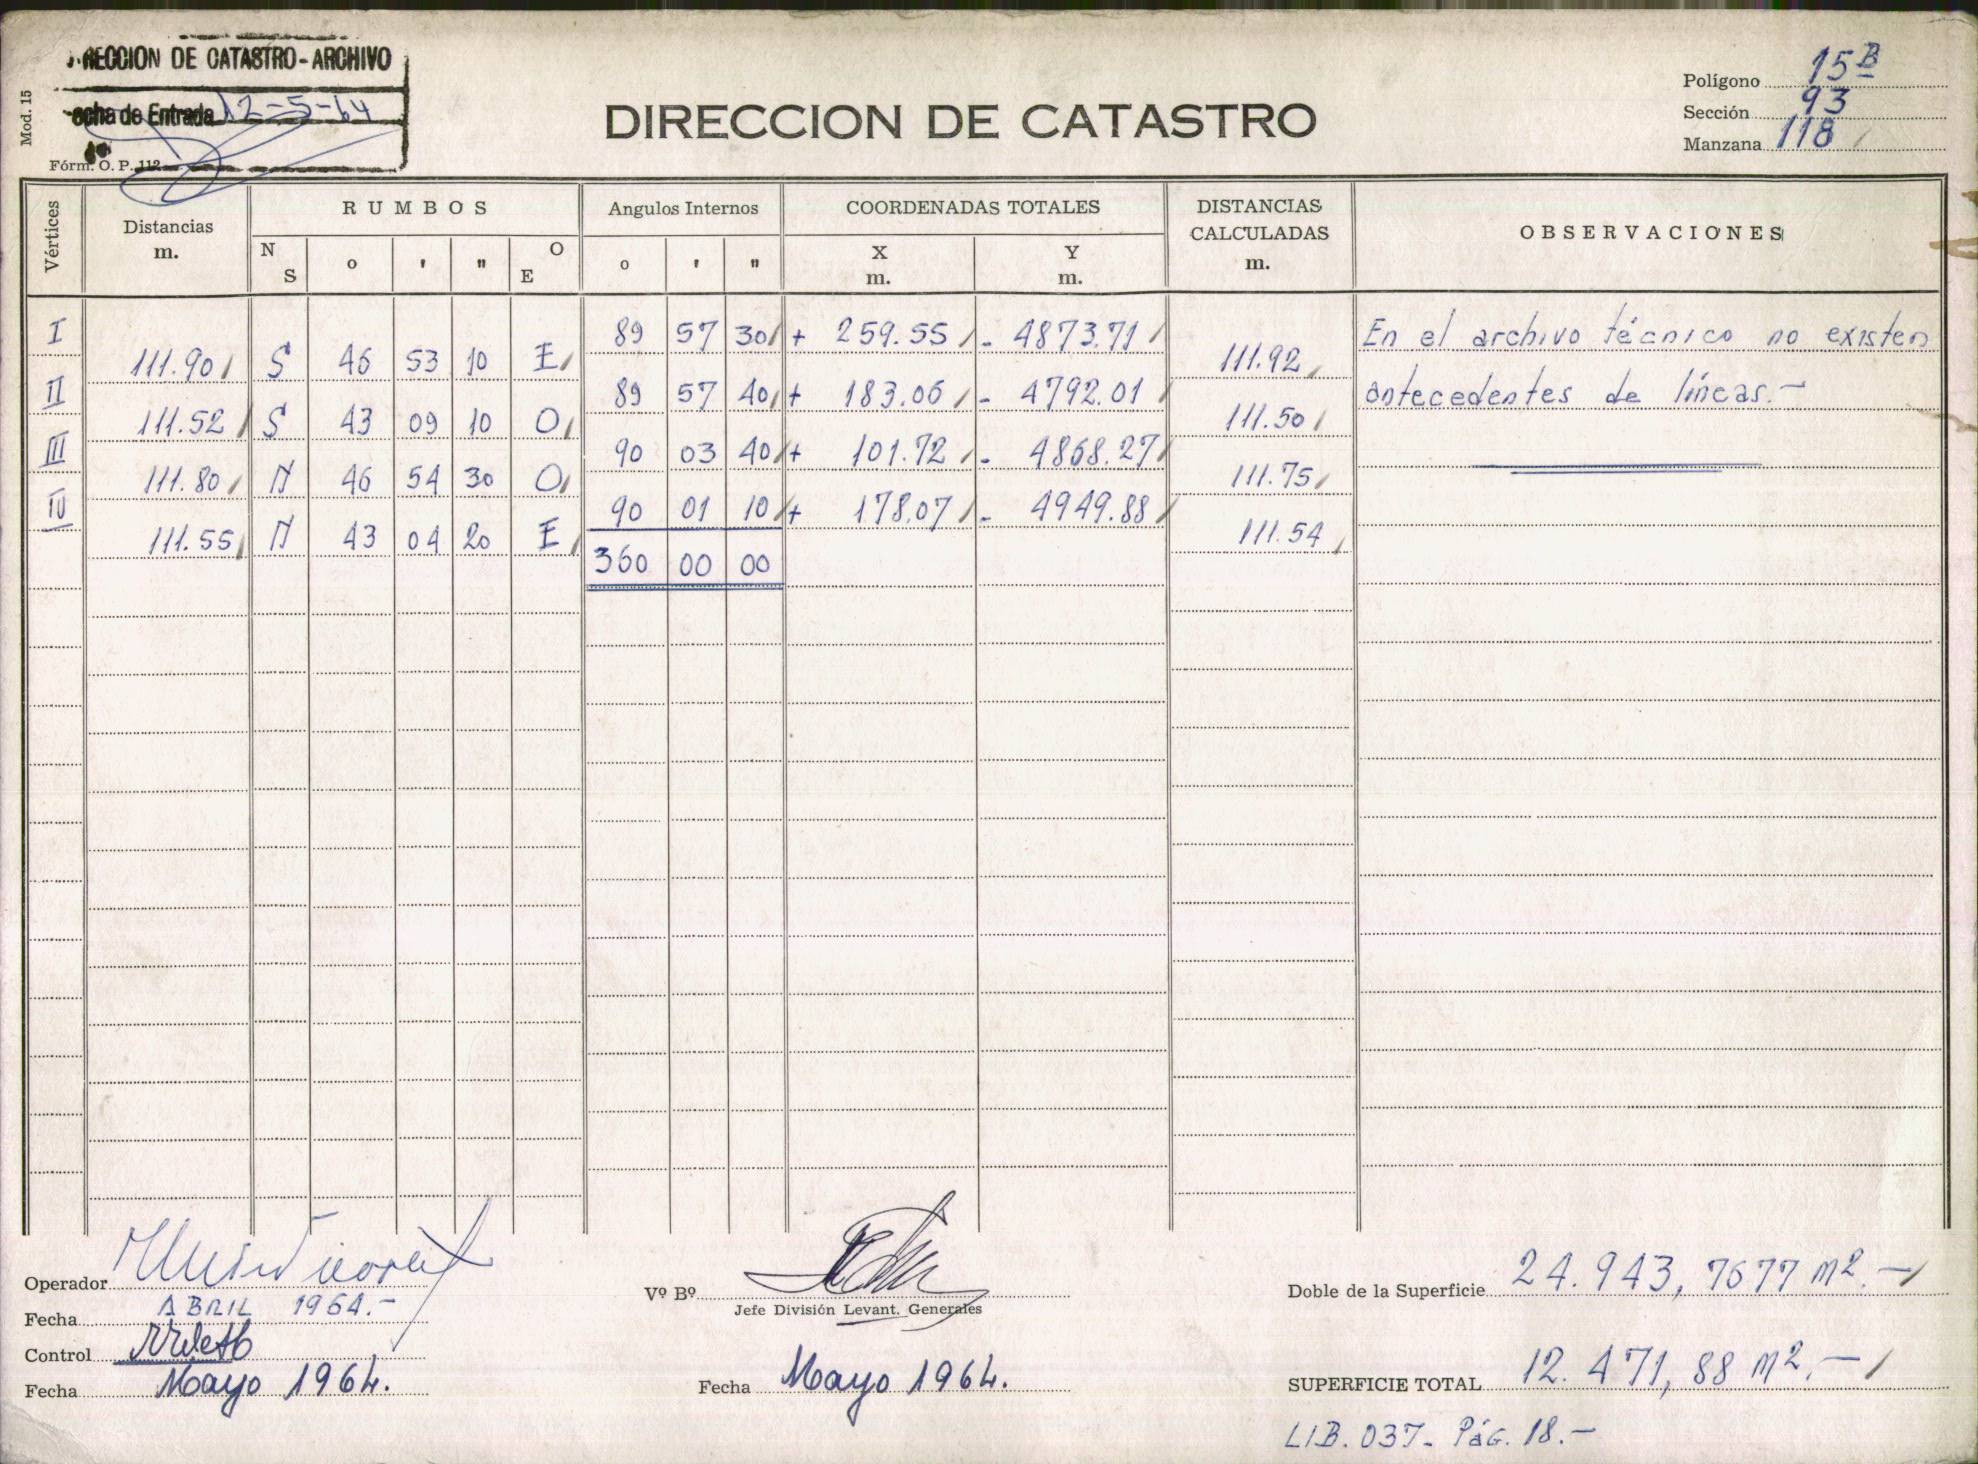 RECCION DE CATASTRO - ARCHIVO
echa de Entrada 12-5-64
Mod. 15
Fórm. O. P. 112
DIRECCION DE CATASTRO
Polígono 15 B
Sección 93
Manzana 118
Vértices
Distancias m.
RUMBOS
N S ° ' " O E
Angulos Internos
° ' "
COORDENADAS TOTALES
X m. Y m.
DISTANCIAS CALCULADAS m.
OBSERVACIONES
I 89 57 30 + 259.55 - 4873.71
111.90 S 46 53 10 E 111.92
II 89 57 40 + 183.06 - 4792.01
111.52 S 43 09 10 O 111.50
III 90 03 40 + 101.72 - 4868.27
111.80 N 46 54 30 O 111.75
IV 90 01 10 + 178.07 - 4949.88
111.55 N 43 04 20 E 111.54
360 00 00
En el archivo técnico no existen
antecedentes de líneas.-
Operador
Fecha ABRIL 1964.-
Control
Fecha Mayo 1964.
Vº Bº
Jefe División Levant. Generales
Fecha Mayo 1964.
Doble de la Superficie 24.943,7677 m2.-
SUPERFICIE TOTAL 12.471,88 m2.-
LIB. 037- Pág. 18.-